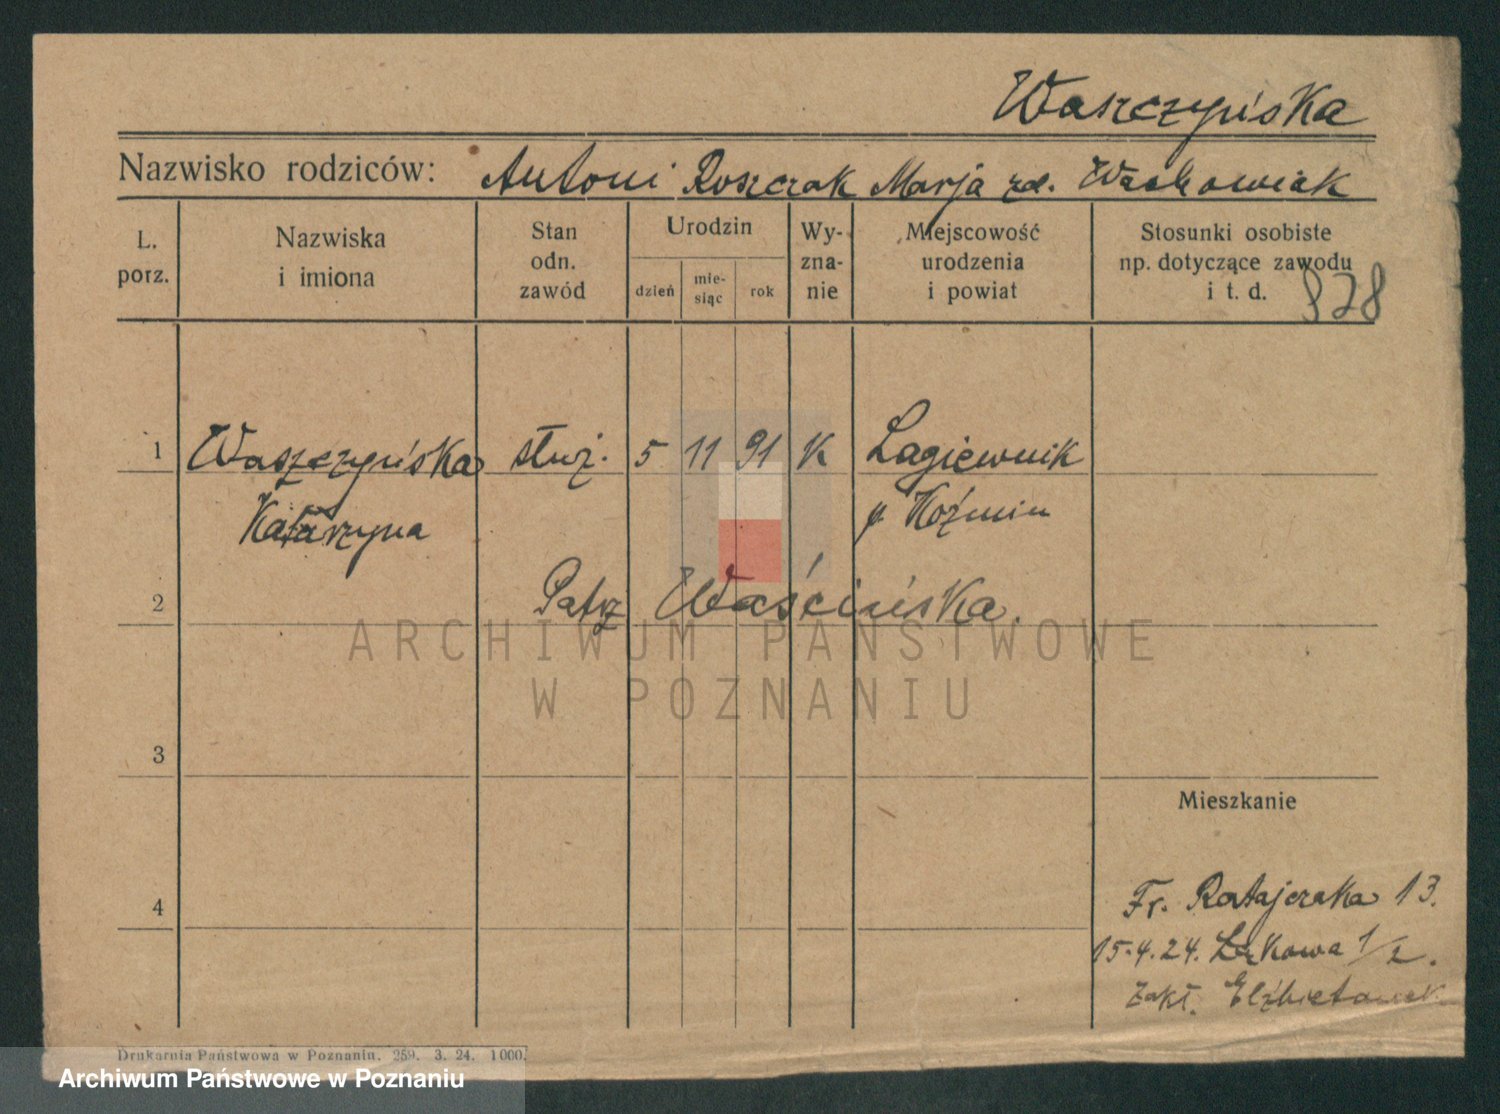 Waszczyńska
Nazwisko rodziców: Antoni Roszczak Marja zd. Wachowiak
L. porz.
Nazwiska i imiona
Stan odn. zawód
Urodzin
dzień
mie-siąc
rok
Wy-zna-nie
Miejscowość urodzenia i powiat
Stosunki osobiste np. dotyczące zawodu i t. d.
928
1 Waszczyńska służ. 5 11 91 K Łagiewnik
Katarzyna p. Koźmin
2 Patrz Waścińska.
ARCHIWUM PAŃSTWOWE
W POZNANIU
3
Mieszkanie
4 Fr. Ratajczaka 13.
15.4.24. Łąkowa 1/2.
Zakł. Elżbietanek
Drukarnia Państwowa w Poznaniu. 259. 3. 24. 1000.
Archiwum Państwowe w Poznaniu